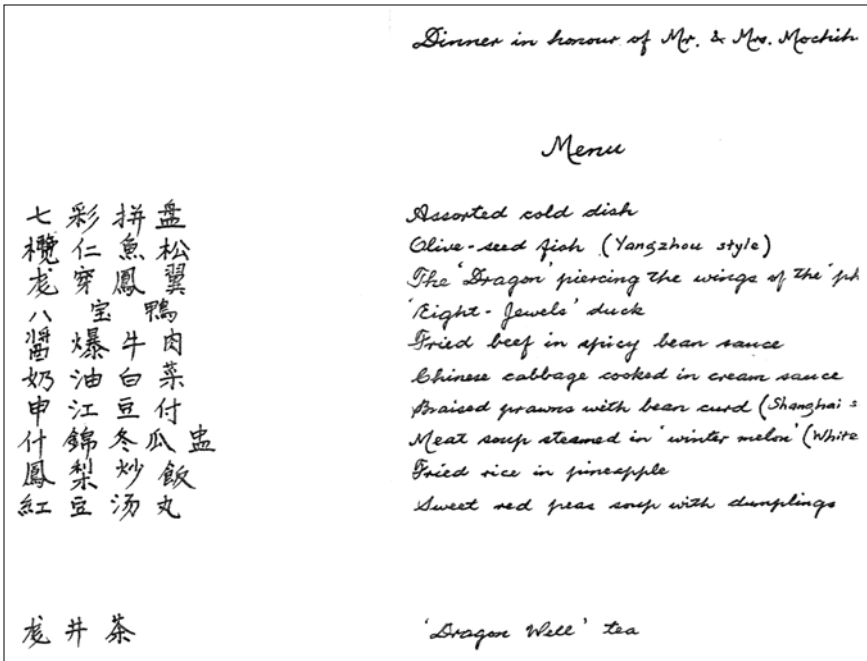 七彩拼盘
欖仁魚松
龙穿鳳翼
八宝鴨
醬爆牛肉
奶油白菜
申江豆付
什錦冬瓜盅
鳳梨炒飯
紅豆汤丸
龙井茶
Dinner in honour of Mr. & Mrs. Mochih
Menu
Assorted cold dish
Olive-seed fish (Yangzhou style)
The 'Dragon' piercing the wings of the 'ph
'Eight-Jewels' duck
Fried beef in spicy bean sauce
Chinese cabbage cooked in cream sauce
Braised prawns with bean curd (Shanghai s
Meat soup steamed in 'winter melon' (White
Fried rice in pineapple
Sweet red peas soup with dumplings
'Dragon Well' tea